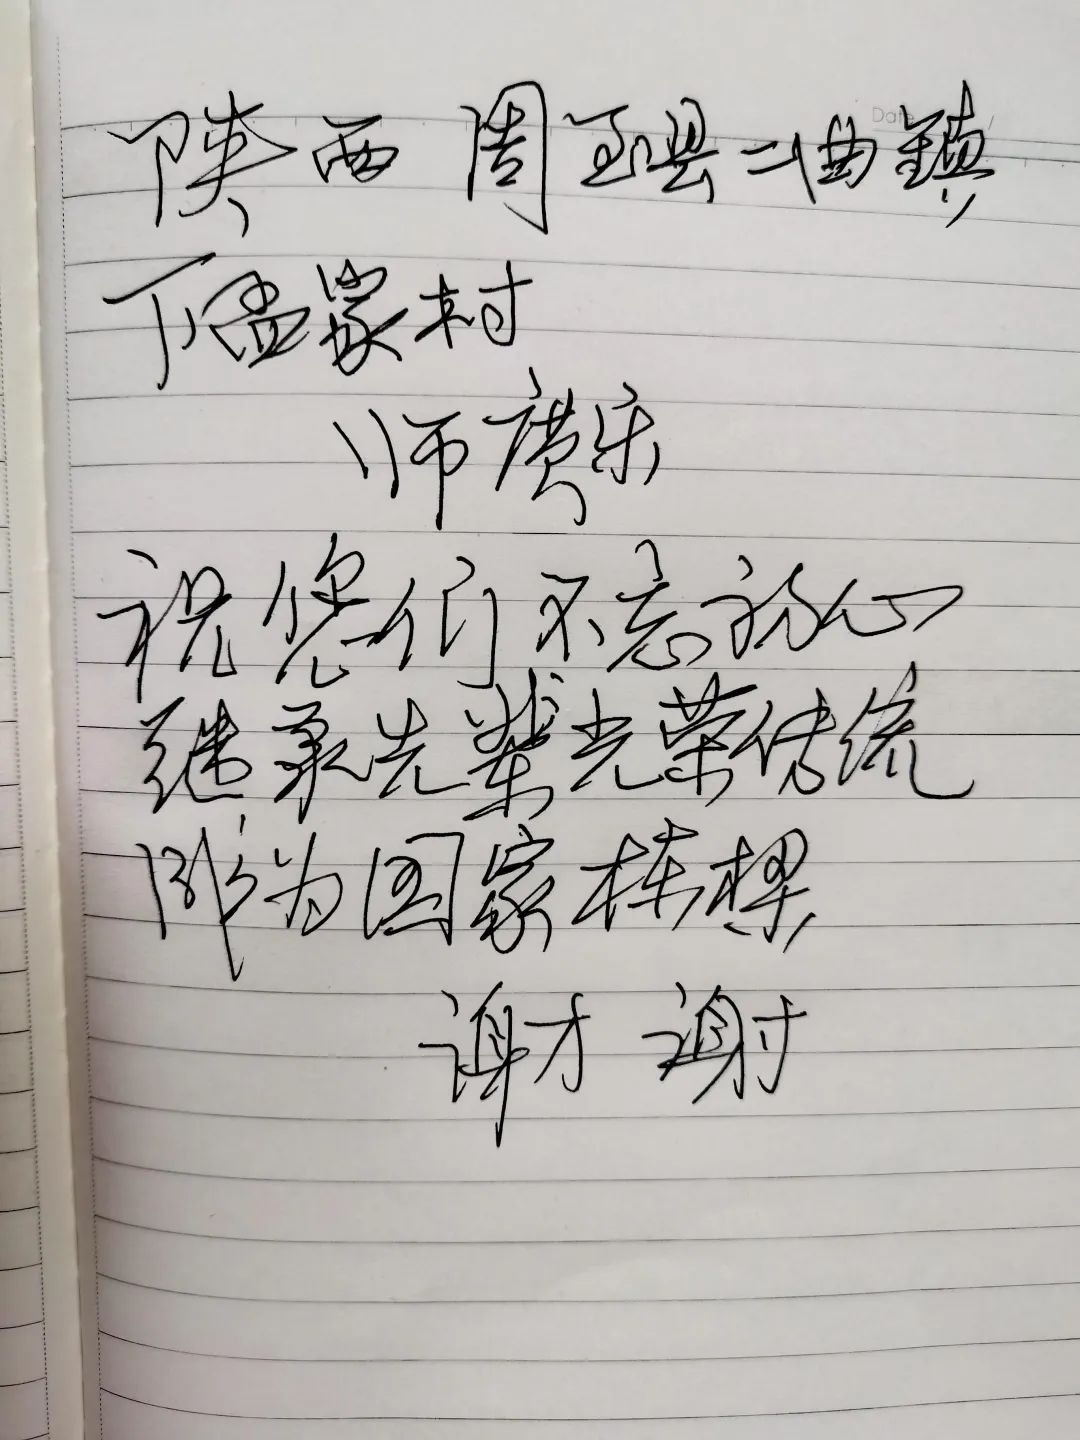 Date /
陕西 周至县二曲镇
下孟家村
师广乐
祝您们不忘初心
继承先辈光荣传统
成为国家栋梁
谢才 谢